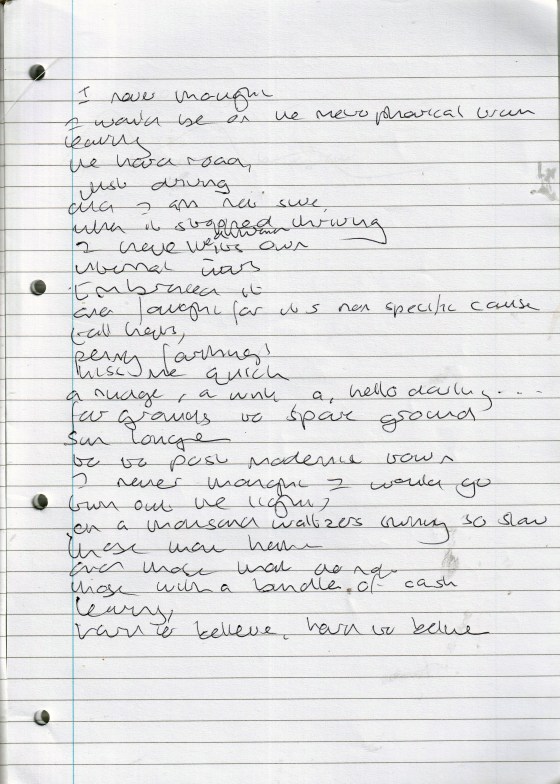 I never thought
I would be on the metaphorical train
leaving
the hard road,
just driving
and I am not sure
when it stopped driving
I have its own
internal wars
Embraced it
and fought for its non specific cause
tall hats,
penny farthings
kiss me quick
a nudge, a wink a, hello darling....
fair grounds to spare ground
sun lounge
to to post modernic town
I never thought I would go
turn out the lights,
on a thousand waltzers turning so slow
those that have
and those that do not
those with a bundle of cash
leaving,
hard to believe, hard to believe